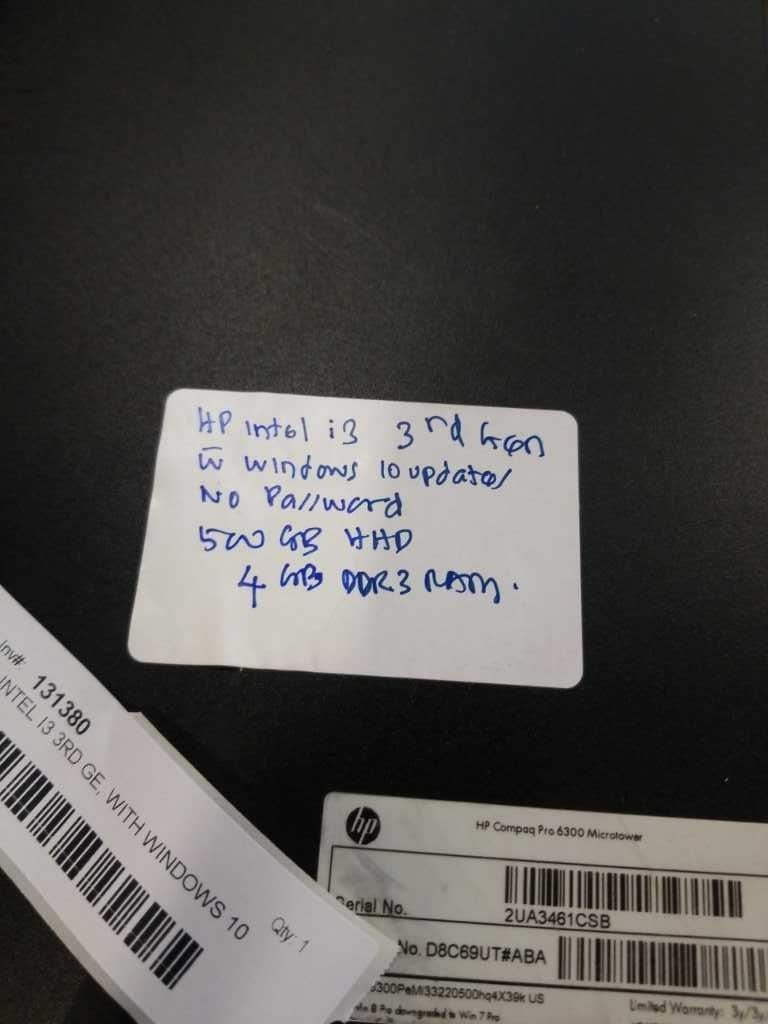 HP intel i3 3rd Gen
w̅ windows 10 updates
No Password
500 GB HHD
4 GB DDR3 RAM.
Inv#: 131380
INTEL I3 3RD GE, WITH WINDOWS 10
Qty: 1
hp
HP Compaq Pro 6300 Microtower
Serial No.
2UA3461CSB
No. D8C69UT#ABA
6300PeMi33220500hq4X39k US
Win 8 Pro downgraded to Win 7 Pro
Limited Warranty: 3y/3y